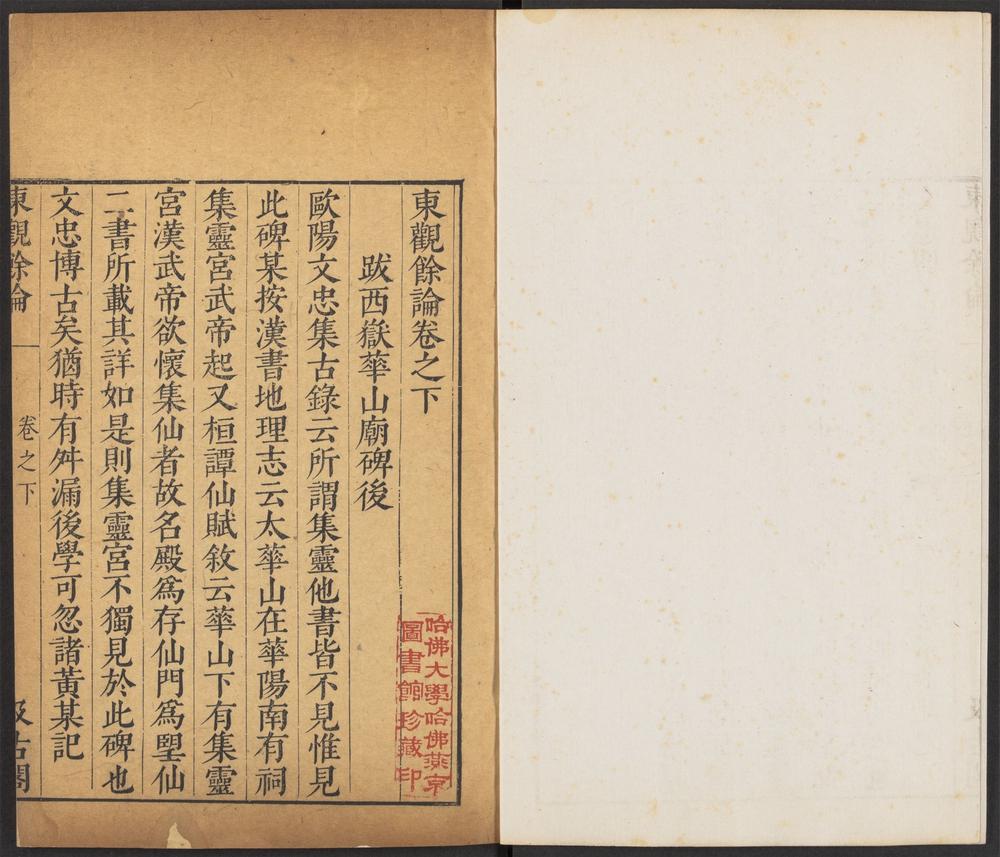 東觀餘論卷之下
跋西嶽華山廟碑後
歐陽文忠集古錄云所謂集靈他書皆不見惟見
此碑某按漢書地理志云太華山在華陽南有祠
集靈宮武帝起又桓譚仙賦敘云華山下有集靈
宮漢武帝欲懷集仙者故名殿爲存仙門爲朢仙
二書所載其詳如是則集靈宮不獨見於此碑也
文忠博古矣猶時有舛漏後學可忽諸黃某記
東觀餘論
卷之下
汲古閣
哈佛大學哈佛燕京
圖書館珍藏印